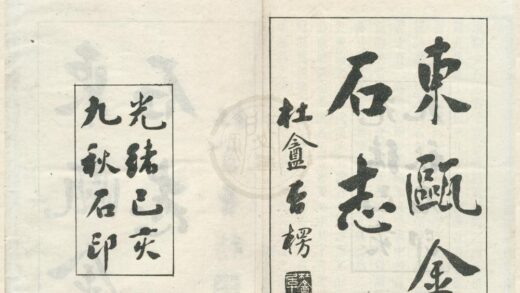 東甌金
石志
杜盦
光緒己亥
九秋石印